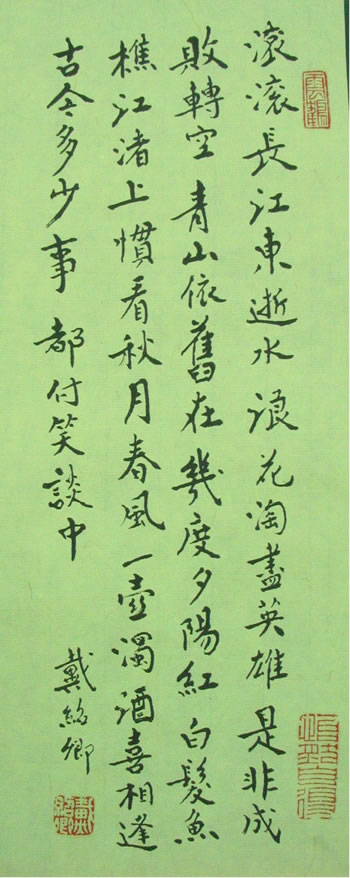 滚滚長江東逝水浪花淘盡英雄是非成
敗轉空 青山依舊在幾度夕陽紅白髮魚
樵江渚上慣看秋月春風一壺濁酒喜相逢
古今多少事都付笑談中
戴紹卿
雲鶴